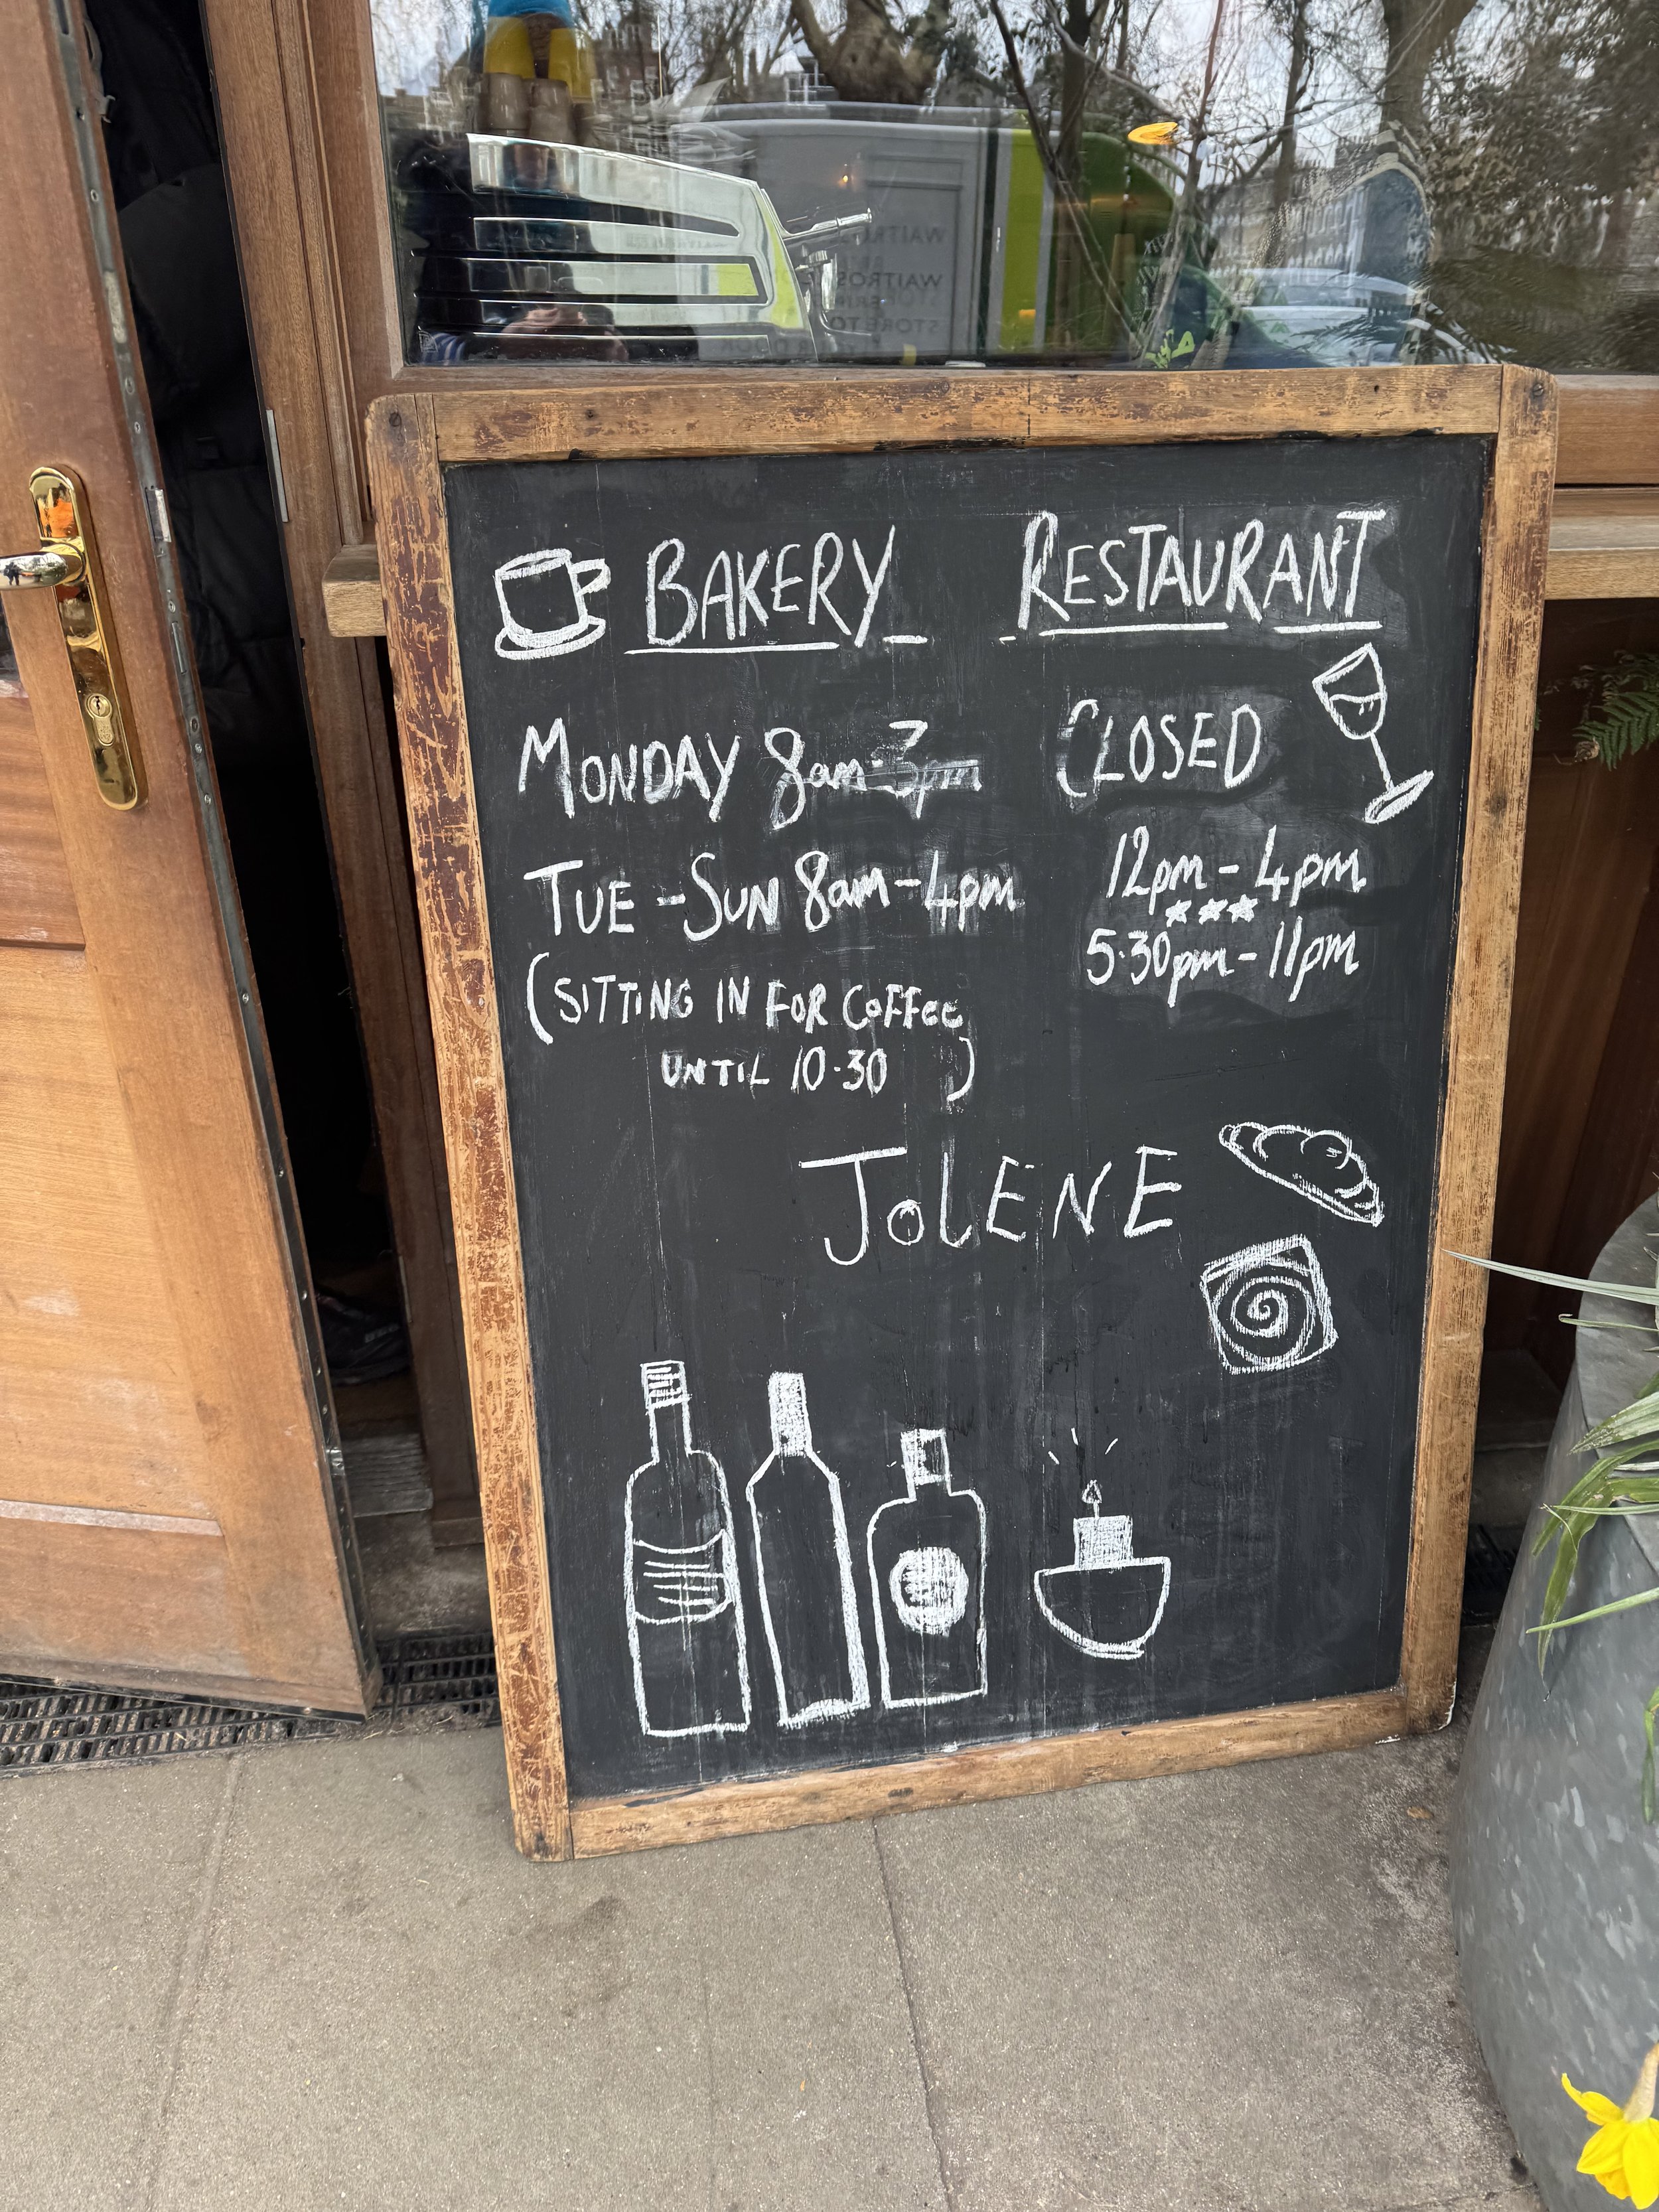 BAKERY RESTAURANT
MONDAY 8am-3pm CLOSED
TUE - SUN 8am - 4pm 12pm - 4pm
5.30pm - 11pm
(SITTING IN FOR COFFEE
UNTIL 10.30)
JOLENE
WAITROSE
WAITROSE
STORE TO